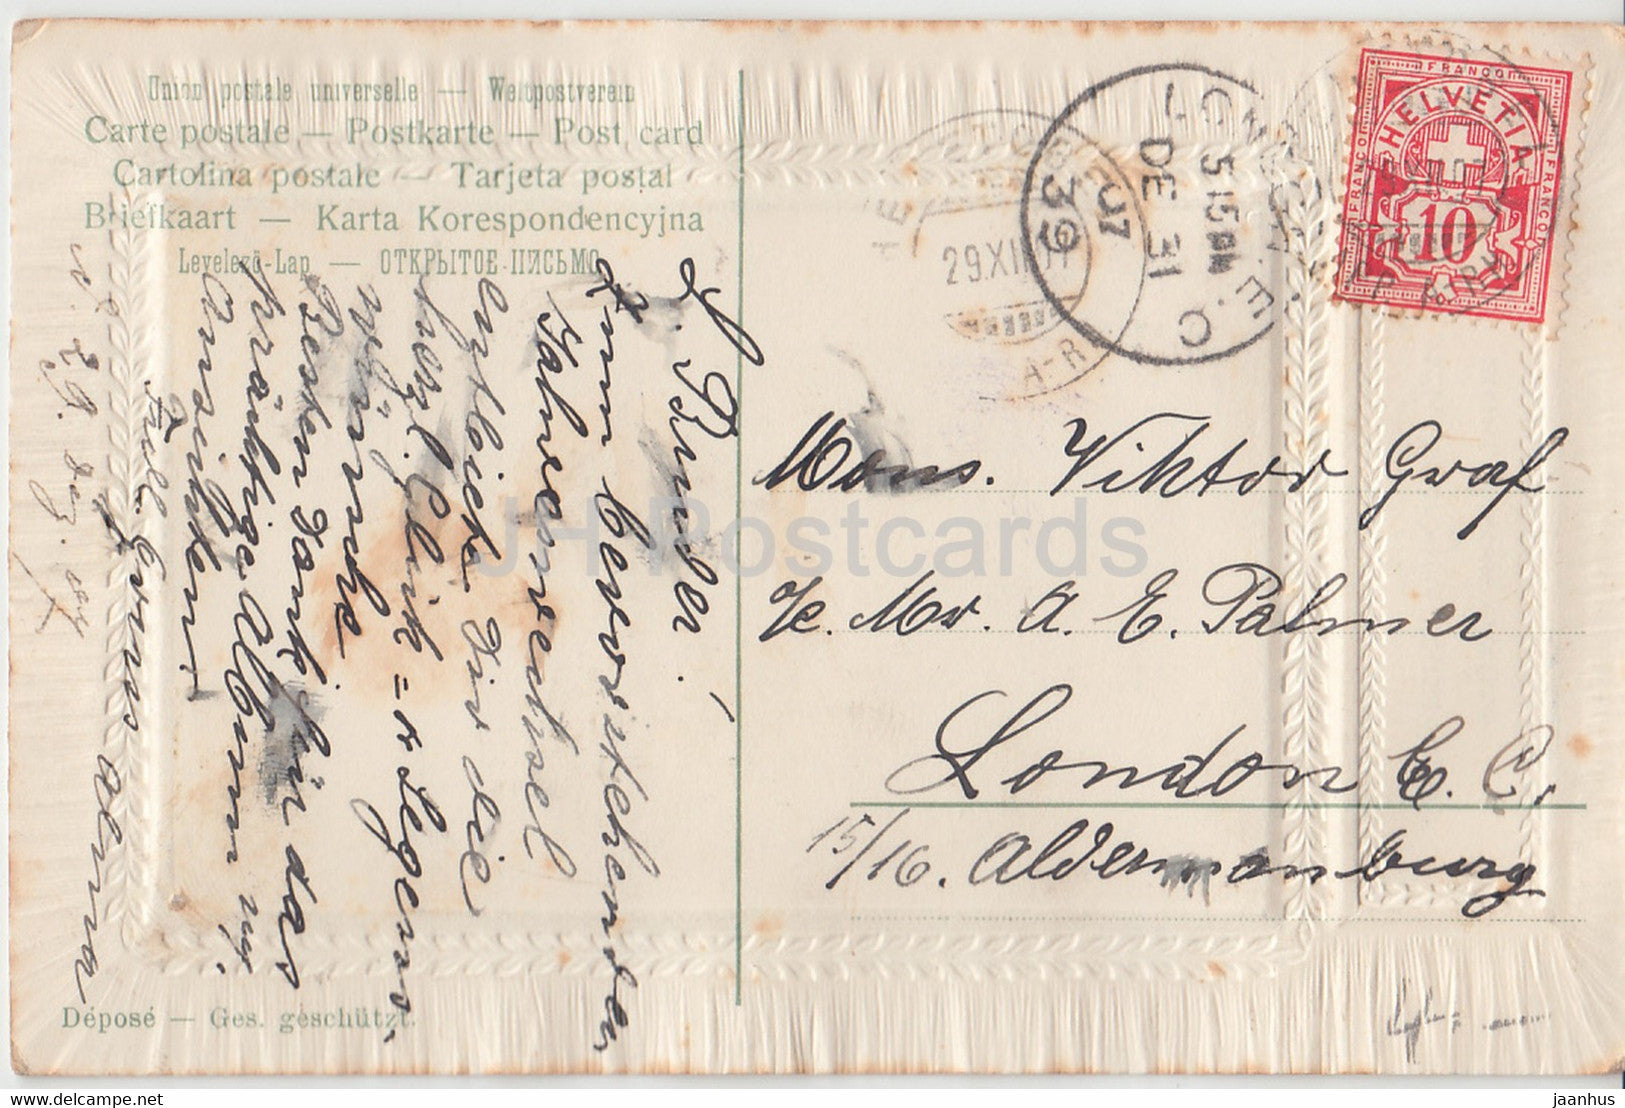 Union postale universelle — Weltpostverein
Carte postale — Postkarte — Post card
Cartolina postale — Tarjeta postal
Briefkaart — Karta Korespondencyjna
Levelező-Lap — ОТКРЫТОЕ ПИСЬМО
L. Bruder!
Zum bevorstehenden
Jahreswechsel
entbiete Dir die
herzl. Glück = & Segens-
wünsche
Besten Dank für das
prächtige Album m.
Ansichten
Frdl. Gruss Alma
Mons. Viktor Graf
c/o. Mr. A. E. Palmer
London E. C.
15/16. Aldermanburg
Déposé — Ges. geschützt.
FRANCO
HELVETIA
FRANCO
FRANCO
10
LONDON. E.C
5 15 AM
DE 31
07
39
29.XII.07
A-R
JH Postcards
delcampe.net
jaanhus